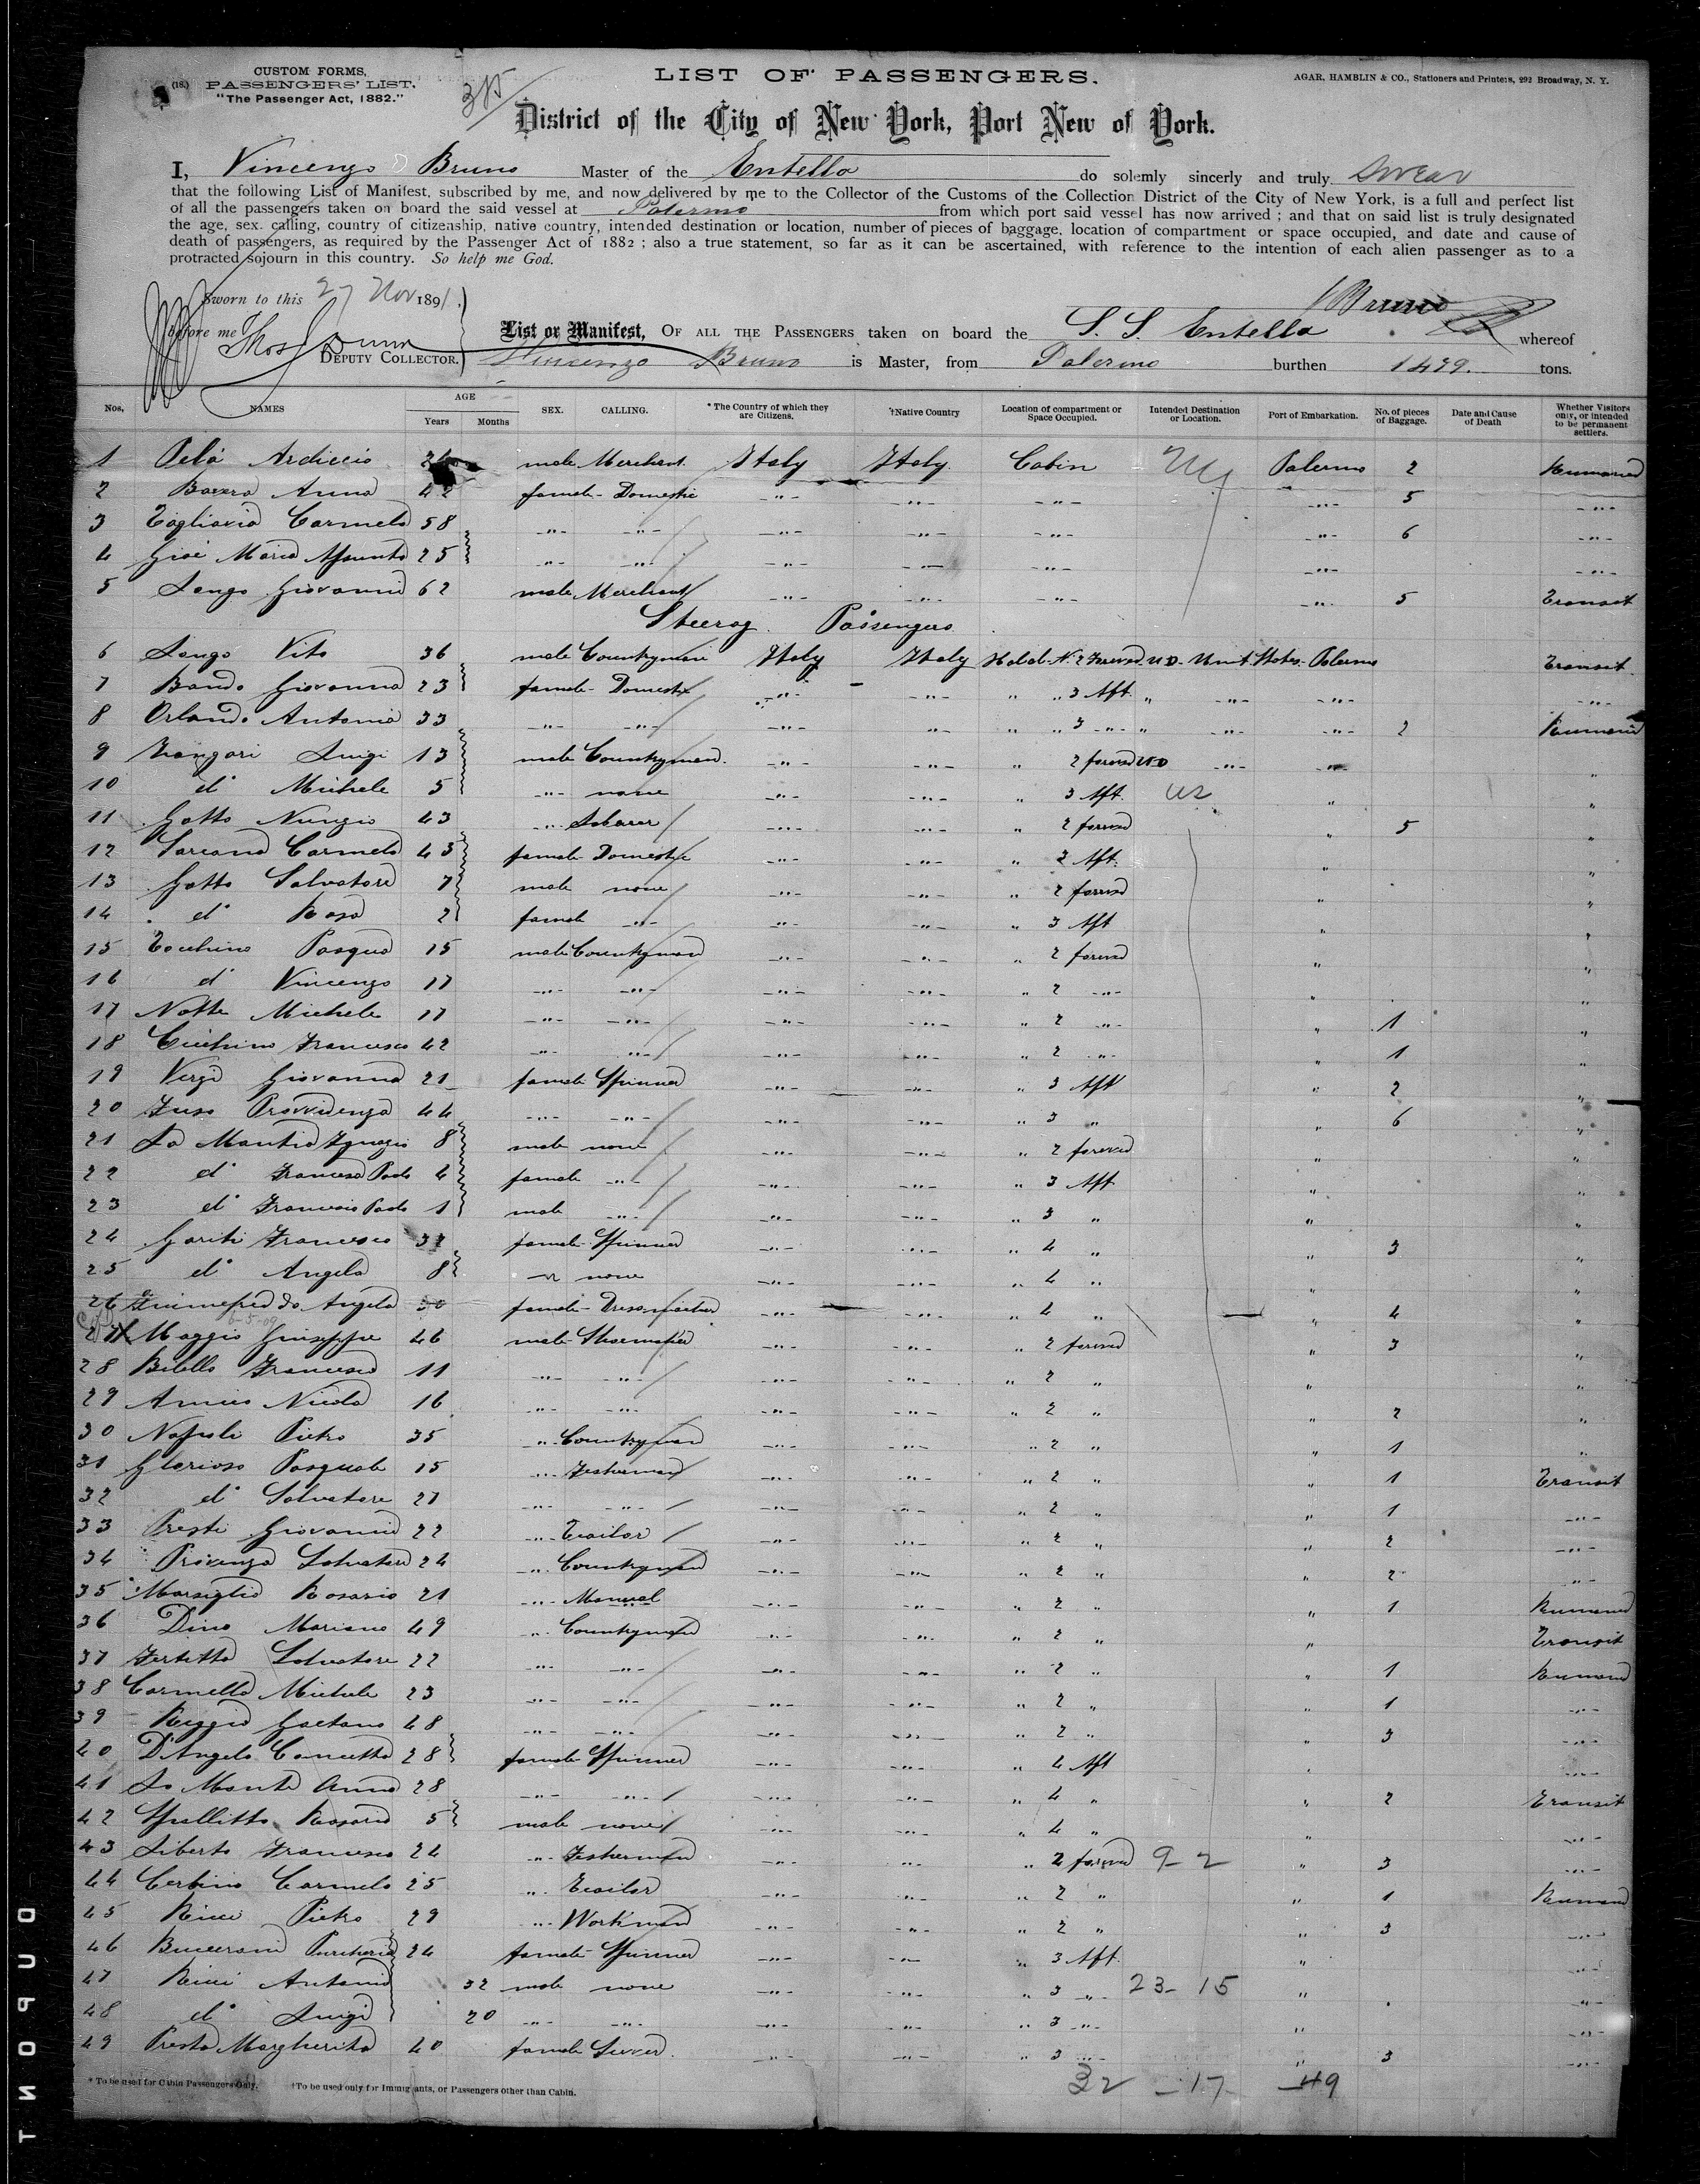 (18.) CUSTOM FORMS,
PASSENGERS' LIST.
"The Passenger Act, 1882."
LIST OF PASSENGERS.
AGAR, HAMBLIN & CO., Stationers and Printers, 292 Broadway, N. Y.
District of the City of New York, Port New of York.
I, Vincenzo Bruno Master of the Entella do solemly sincerly and truly swear
that the following List of Manifest, subscribed by me, and now delivered by me to the Collector of the Customs of the Collection District of the City of New York, is a full and perfect list
of all the passengers taken on board the said vessel at Palermo from which port said vessel has now arrived ; and that on said list is truly designated
the age, sex. calling, country of citizenship, native country, intended destination or location, number of pieces of baggage, location of compartment or space occupied, and date and cause of
death of passengers, as required by the Passenger Act of 1882 ; also a true statement, so far as it can be ascertained, with reference to the intention of each alien passenger as to a
protracted sojourn in this country. So help me God.
Sworn to this 27 Nov 1891.
V Bruno
before me Thos Dunn
DEPUTY COLLECTOR.
List or Manifest, OF ALL THE PASSENGERS taken on board the S. S. Entella whereof
Vincenzo Bruno is Master, from Palermo burthen 1439. tons.
Nos, NAMES AGE Years Months SEX. CALLING. * The Country of which they are Citizens. †Native Country Location of compartment or Space Occupied. Intended Destination or Location. Port of Embarkation. No. of pieces of Baggage. Date and Cause of Death Whether Visitors only, or intended to be permanent settlers.
1 Ardiccio male Merchant Italy Italy Cabin NY Palermo 2
2 Anna 42 famale Domestic -"- -"- -"- -"- 5 -"-
3 Tagliavia Carmela 58 -"- -"- -"- -"- -"- -"- 6 -"-
4 Gioè Maria Assunta 25 -"- -"- -"- -"- -"- -"- -"-
5 Longo Giovanni 62 male Merchant -"- -"- -"- -"- 5 Transit
Steerag Passengers
6 Longo Vito 36 male Countryman Italy Italy Hold N. 2 Forward U.D. Unit. States Palermo Transit
7 Bando Giovanna 23 famale Domestic -"- -"- " " 3 Aft. " -"- -"- -"-
8 Orlando Antonia 33 -"- -"- -"- -"- " " 3 -"- " -"- -"- 2
9 Luigi 13 male Countryman -"- -"- " 2 forwd U.D -"- -"- "
10 d° Michele 5 -"- none -"- -"- " 3 Aft. US " "
11 Gatto Nunzio 43 -"- -"- -"- " 2 forwd " 5 "
12 Carmela 43 famale Domestic -"- -"- " 2 Aft. " "
13 Gatto Salvatore 7 male none -"- -"- " 2 forwd " "
14 d° Rosa 2 famale -"- -"- -"- " 3 Aft " "
15 Pasqua 15 male Countryman -"- -"- " 2 forwd " "
16 d° Vincenzo 17 -"- -"- -"- -"- " 2 -"- " "
17 Michele 17 -"- -"- -"- -"- " 2 -"- " 1 "
18 Francesco 42 -"- -"- -"- -"- " 2 -"- " 1 "
19 Giovanna 21 famale Spinner -"- -"- " 3 Aft " 2 "
20 Provvidenza 44 -"- -"- -"- -"- " 3 " " 6 "
21 La Mantia Ignazio 8 male none -"- -"- " 2 forwd " "
22 d° Francesca Paola 4 famale -"- -"- -"- " 3 Aft " "
23 d° Francesco Paolo 1 male -"- -"- -"- " 3 " " "
24 Francesca famale Spinner -"- -"- " 4 " " 3 "
25 d° Angela 8 -"- none -"- -"- " 4 " "
26 Angela 30 famale Dressmaker -"- -"- " 4 " " 4 "
6-5-09
27 X Maggio Giuseppe 46 male Shoemaker -"- -"- " 2 forwd " 3 "
28 Bilello Francesco 11 -"- -"- -"- -"- " 2 " " "
29 Nicola 16 -"- -"- -"- -"- " 2 " " 2 "
30 Napoli Pietro 35 -"- Countryman -"- -"- " 2 " " 1 "
31 Glorioso Pasquale 15 -"- Fesherman -"- -"- " 2 " " 1 Transit
32 d° Salvatore 27 -"- -"- -"- -"- " 2 " " 1 -"-
33 Presti Giovanni 22 -"- Tailor -"- -"- " 2 " " 2 -"-
34 Provenza Salvatore 24 -"- Countryman -"- -"- " 2 " " 2 -"-
35 Marsiglia Rosario 21 -"- Manual -"- -"- " 2 " " 1
36 Dino Mariano 49 -"- Countryman -"- -"- " 2 " " Transit
37 Salvatore 22 -"- -"- -"- -"- " 2 " " 1
38 Carmella Michele 23 -"- -"- -"- -"- " 2 " " 1 -"-
39 Reggio Gaetano 48 -"- -"- -"- -"- " 2 " 3 -"-
40 D'Angelo Concetta 28 famale Spinner -"- -"- " 4 Aft " -"-
41 Lo Monte Anna 28 -"- -"- -"- -"- " 4 " " 2 Transit
42 Rosario 5 male none -"- -"- " 4 " " -"-
43 Liberto Francesco 24 -"- Fesherman -"- -"- " 2 forwd 9-2 " 3 -"-
44 Cerbino Carmelo 25 -"- Tailor -"- -"- " 2 " " 1
45 Ricci Pietro 29 -"- Workman -"- -"- " 2 " " 3 -"-
46 24 famale Spinner -"- -"- " 3 Aft. " -"-
47 Ricci Antonio 32 male none -"- -"- " 3 " 23-15 " -"-
48 d° Luigi 20 -"- -"- -"- -"- " 3 -"- " -"-
49 Presta Margherita 40 famale -"- -"- " 3 -"- " 3 -"-
32 - 17 - 49
* To be used for Cabin Passengers Only. †To be used only for Immigrants, or Passengers other than Cabin.
DUPONT